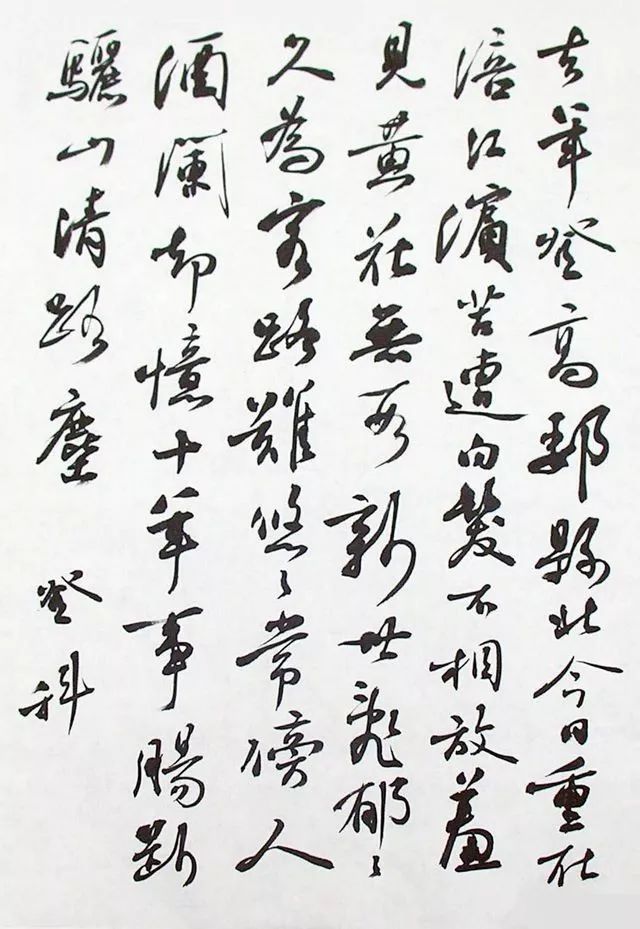 去年登高郪縣北今日重在
涪江濱苦遭白髮不相放羞
見黄花無數新世亂郁〻
久為客路難悠〻常傍人
酒瀾却憶十年事腸斷
驪山清路塵
登科